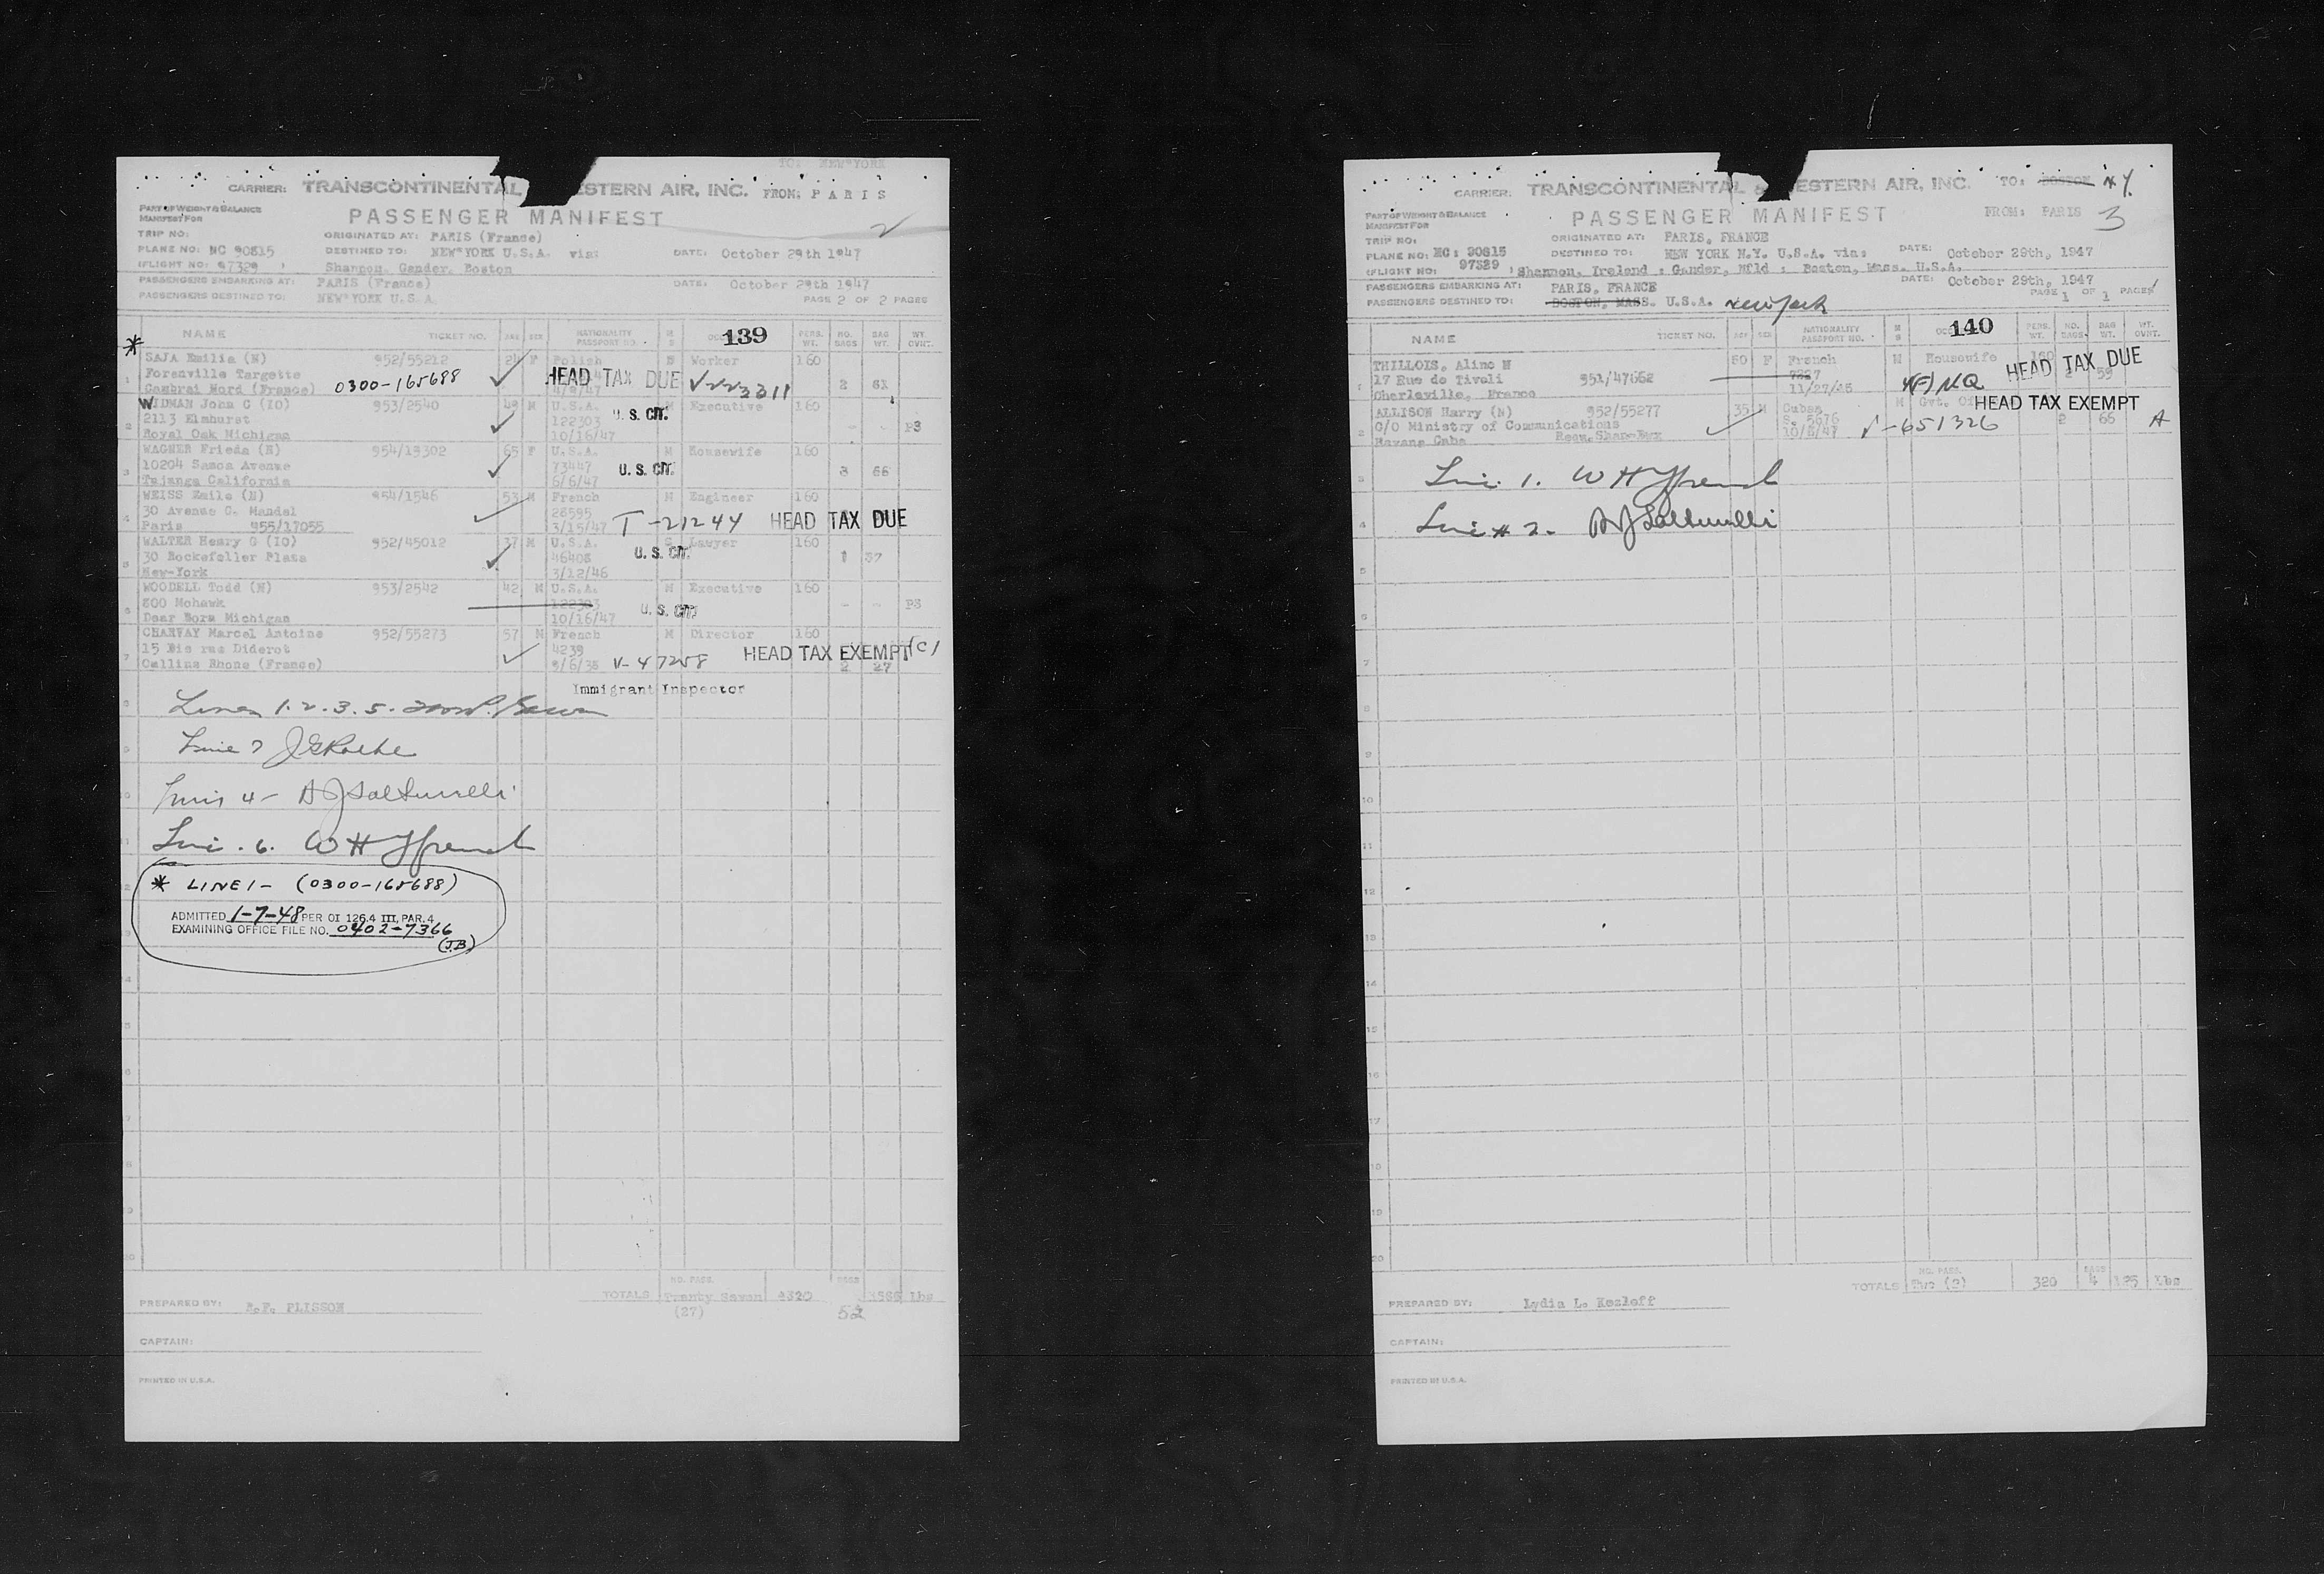 TO: NEW YORK
CARRIER: TRANSCONTINENTAL ESTERN AIR, INC. FROM: PARIS
PART OF WEIGHT & BALANCE
MANIFEST FOR
PASSENGER MANIFEST
2
TRIP NO:
ORIGINATED AT: PARIS (France)
PLANE NO: NC 90815
DESTINED TO: NEW YORK U.S.A. via:
DATE: October 29th 1947
(FLIGHT NO: 97329 )
Shannon, Gander, Boston
PASSENGERS EMBARKING AT: PARIS (France)
DATE: October 29th 1947
PASSENGERS DESTINED TO: NEW YORK U.S.A.
PAGE 2 OF 2 PAGES
NAME TICKET NO. AGE SEX NATIONALITY PASSPORT NO. M S 139 PERS. WT. NO. BAGS BAG WT. WT. OVNT.
*
1 SAJA Emilia (N) 952/55212 F Polish Worker 160
Forenville Targette
Cambrai Nord (France) 0300-165688 4/9/47 HEAD TAX DUE V223311 2
2 WIDMAN John C (IO) 953/2540 49 M U.S.A. M Executive 160
2113 Elmhurst 122303 U.S. CIT. - - P3
Royal Oak Michigan 10/16/47
3 WAGNER Frieda (N) 954/13302 65 F U.S.A. M Housewife 160
10204 Samoa Avenue 73447 U.S. CIT. 3 66
Tujunga California 6/6/47
4 WEISS Emile (N) 954/1546 53 M French M Engineer 160
30 Avenue G. Mandel 28595
Paris 955/17055 3/15/47 T-21244 HEAD TAX DUE
5 WALTER Henry G (IO) 952/45012 37 M U.S.A. S Lawyer 160
30 Rockefeller Plaza 46408 U.S. CIT. 1 37
New-York 3/12/46
6 WOODELL Todd (N) 953/2542 42 M U.S.A. M Executive 160
800 Mohawk U.S. CIT. - - P3
Dear Born Michigan 10/16/47
7 CHARVAY Marcel Antoine 952/55273 57 M French M Director 160
15 Bis rue Diderot 4239 HEAD TAX EXEMPT (C)
Cullins Rhone (France) 9/6/38 V-47258 2 27
Immigrant Inspector
Lines 1.2.3.5.
Line 7
Line 4 - A J Salturelli
Line . 6. W H French
* LINE 1 - (0300-165688)
ADMITTED 1-7-48 PER OI 126.4 III, PAR. 4
EXAMINING OFFICE FILE NO. 0402-7366
(J.B)
NO. PASS. BAGS
TOTALS Twenty Seven 4320 Lbs
(27) 52
PREPARED BY: PLISSON
CAPTAIN:
PRINTED IN U.S.A.
CARRIER: TRANSCONTINENTAL & ESTERN AIR, INC. TO: BOSTON N.Y.
PART OF WEIGHT & BALANCE
MANIFEST FOR
PASSENGER MANIFEST
FROM: PARIS 3
TRIP NO:
ORIGINATED AT: PARIS, FRANCE
PLANE NO: NC: 90815
DESTINED TO: NEW YORK N.Y. U.S.A. via:
DATE: October 29th, 1947
(FLIGHT NO: 97329 ) Shannon, Ireland : Gander, Nfld : Boston, Mass. U.S.A.
PASSENGERS EMBARKING AT: PARIS, FRANCE
DATE: October 29th, 1947
PASSENGERS DESTINED TO: BOSTON, MASS. U.S.A. New York
PAGE 1 OF 1 PAGES
NAME TICKET NO. AGE SEX NATIONALITY PASSPORT NO. M S 140 PERS. WT. NO. BAGS BAG WT. WT. OVNT.
1 THILLOIS, Aline N 60 F French M Housewife 160
17 Rue de Tivoli 951/47662 HEAD TAX DUE 2 59
Charleville, France 11/27/45 4(E) NQ
2 ALLISON Harry (N) 952/55277 35 M Cuban M Gvt. HEAD TAX EXEMPT
C/O Ministry of Communications S. 5676 2 66 A
Havana Cuba 10/8/47 V-651326
Line . 1. W H French
Line # 2 - A J Salturelli
NO. PASS. BAGS
TOTALS Two (2) 320 4 125 Lbs
PREPARED BY: Lydia L. Kozloff
CAPTAIN:
PRINTED IN U.S.A.